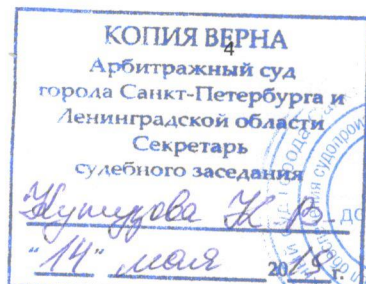 КОПИЯ ВЕРНА
4
Арбитражный суд
города Санкт-Петербурга и
Ленинградской области
Секретарь
судебного заседания
"14" мая 2015 г.